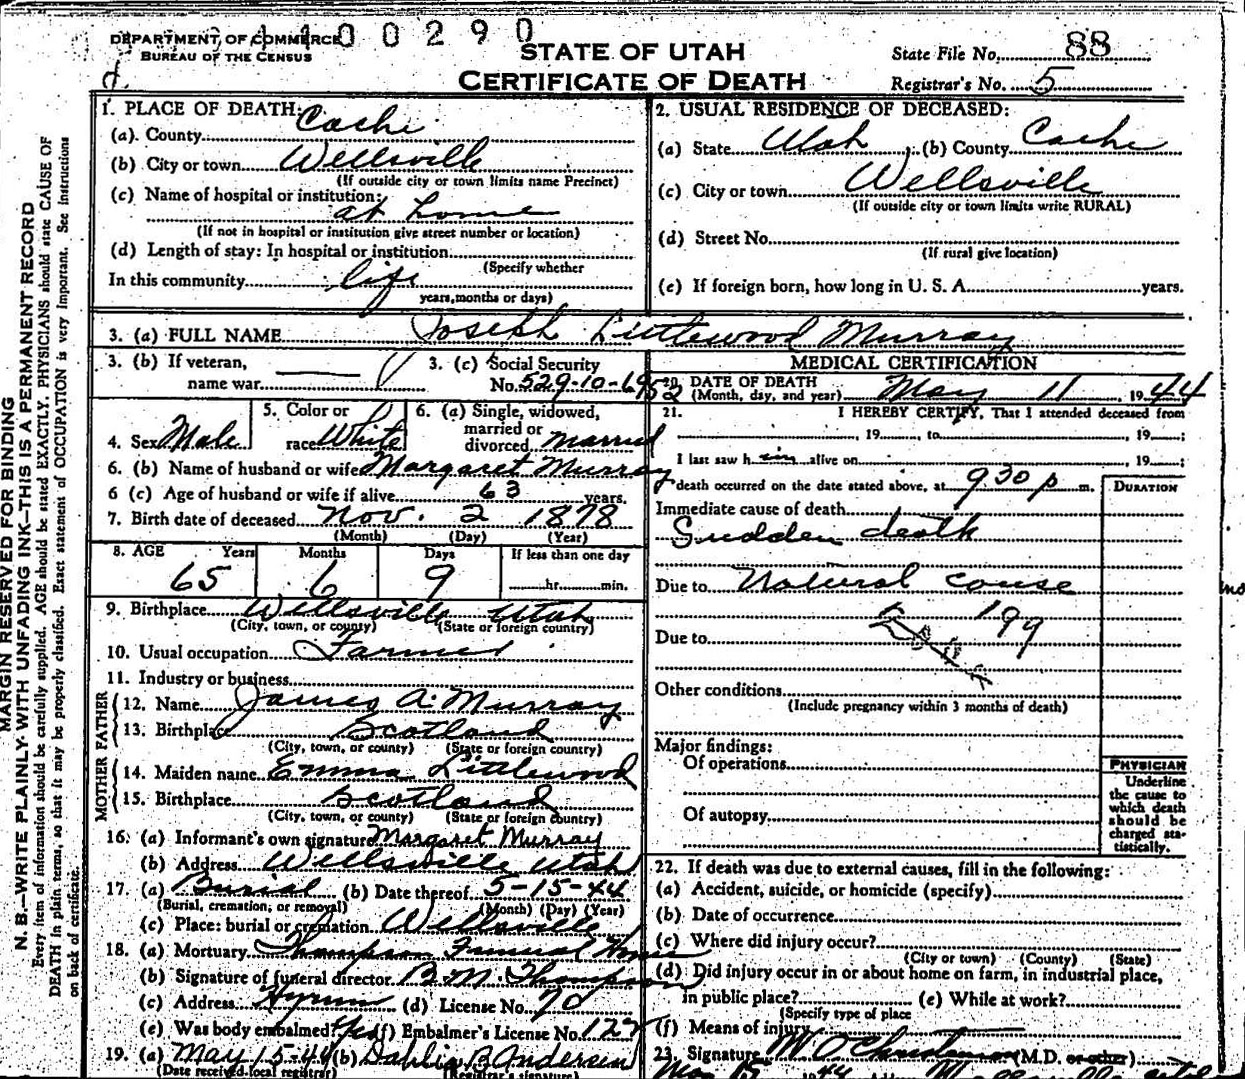 DEPARTMENT OF COMMERCE
BUREAU OF THE CENSUS
0 0 2 9 0
STATE OF UTAH
CERTIFICATE OF DEATH
State File No. 88
Registrar's No. 5
d.
1. PLACE OF DEATH:
(a). County Cache
(b) City or town Wellsville
(If outside city or town limits name Precinct)
(c) Name of hospital or institution:
at home
(If not in hospital or institution give street number or location)
(d) Length of stay: In hospital or institution
(Specify whether
In this community life
years, months or days)
2. USUAL RESIDENCE OF DECEASED:
(a) State Utah (b) County Cache
(c) City or town Wellsville
(If outside city or town limits write RURAL)
(d) Street No.
(If rural give location)
(e) If foreign born, how long in U. S. A. years.
3. (a) FULL NAME Joseph Littlewood Murray
3. (b) If veteran,
name war
3. (c) Social Security
No. 529-10-6952
4. Sex Male
5. Color or
race White
6. (a) Single, widowed,
married or
divorced married
6. (b) Name of husband or wife Margaret Murray
6 (c) Age of husband or wife if alive 63 years.
7. Birth date of deceased Nov. 2 1878
(Month) (Day) (Year)
8. AGE Years Months Days If less than one day
65 6 9 hr. min.
9. Birthplace Wellsville Utah
(City, town, or county) (State or foreign country)
10. Usual occupation Farmer
11. Industry or business
FATHER
12. Name James A. Murray
13. Birthplace Scotland
(City, town, or county) (State or foreign country)
MOTHER
14. Maiden name Emma Littlewood
15. Birthplace Scotland
(City, town, or county) (State or foreign country)
16. (a) Informant's own signature Margaret Murray
(b) Address Wellsville Utah
17. (a) Burial (b) Date thereof 5-15-44
(Burial, cremation, or removal) (Month) (Day) (Year)
(c) Place: burial or cremation Wellsville
18. (a) Mortuary Thompson Funeral Home
(b) Signature of funeral director B. M. Thompson
(c) Address Hyrum (d) License No. 70
(e) Was body embalmed? Yes (f) Embalmer's License No. 122
19. (a) May 15-44 (b) Dahlia B Andersen
(Date received local registrar) (Registrar's signature)
MEDICAL CERTIFICATION
20. DATE OF DEATH
(Month, day, and year) May 11 1944
21. I HEREBY CERTIFY, That I attended deceased from
, 19 , to , 19 ;
I last saw him alive on , 19 ;
death occurred on the date stated above, at 9 30 p m.
DURATION
Immediate cause of death
Sudden death
Due to Natural couse
199
Due to
Other conditions
(Include pregnancy within 3 months of death)
Major findings:
Of operations
Of autopsy
PHYSICIAN
Underline
the cause to
which death
should be
charged sta-
tistically.
22. If death was due to external causes, fill in the following:
(a) Accident, suicide, or homicide (specify)
(b) Date of occurrence
(c) Where did injury occur?
(City or town) (County) (State)
(d) Did injury occur in or about home on farm, in industrial place,
in public place? (e) While at work?
(Specify type of place
(f) Means of injury
23. Signature (M.D. or other)
MARGIN RESERVED FOR BINDING
N. B.—WRITE PLAINLY WITH UNFADING INK—THIS IS A PERMANENT RECORD
Every item of information should be carefully supplied. AGE should be stated EXACTLY. PHYSICIANS should state CAUSE OF
DEATH in plain terms, so that it may be properly classified. Exact statement of OCCUPATION is very important. See instructions
on back of certificate.